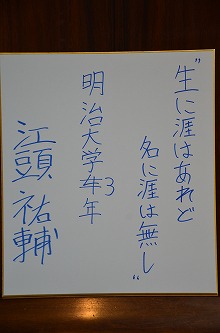 "生に涯はあれど
名に涯は無し"
明治大学3年
江頭祐輔